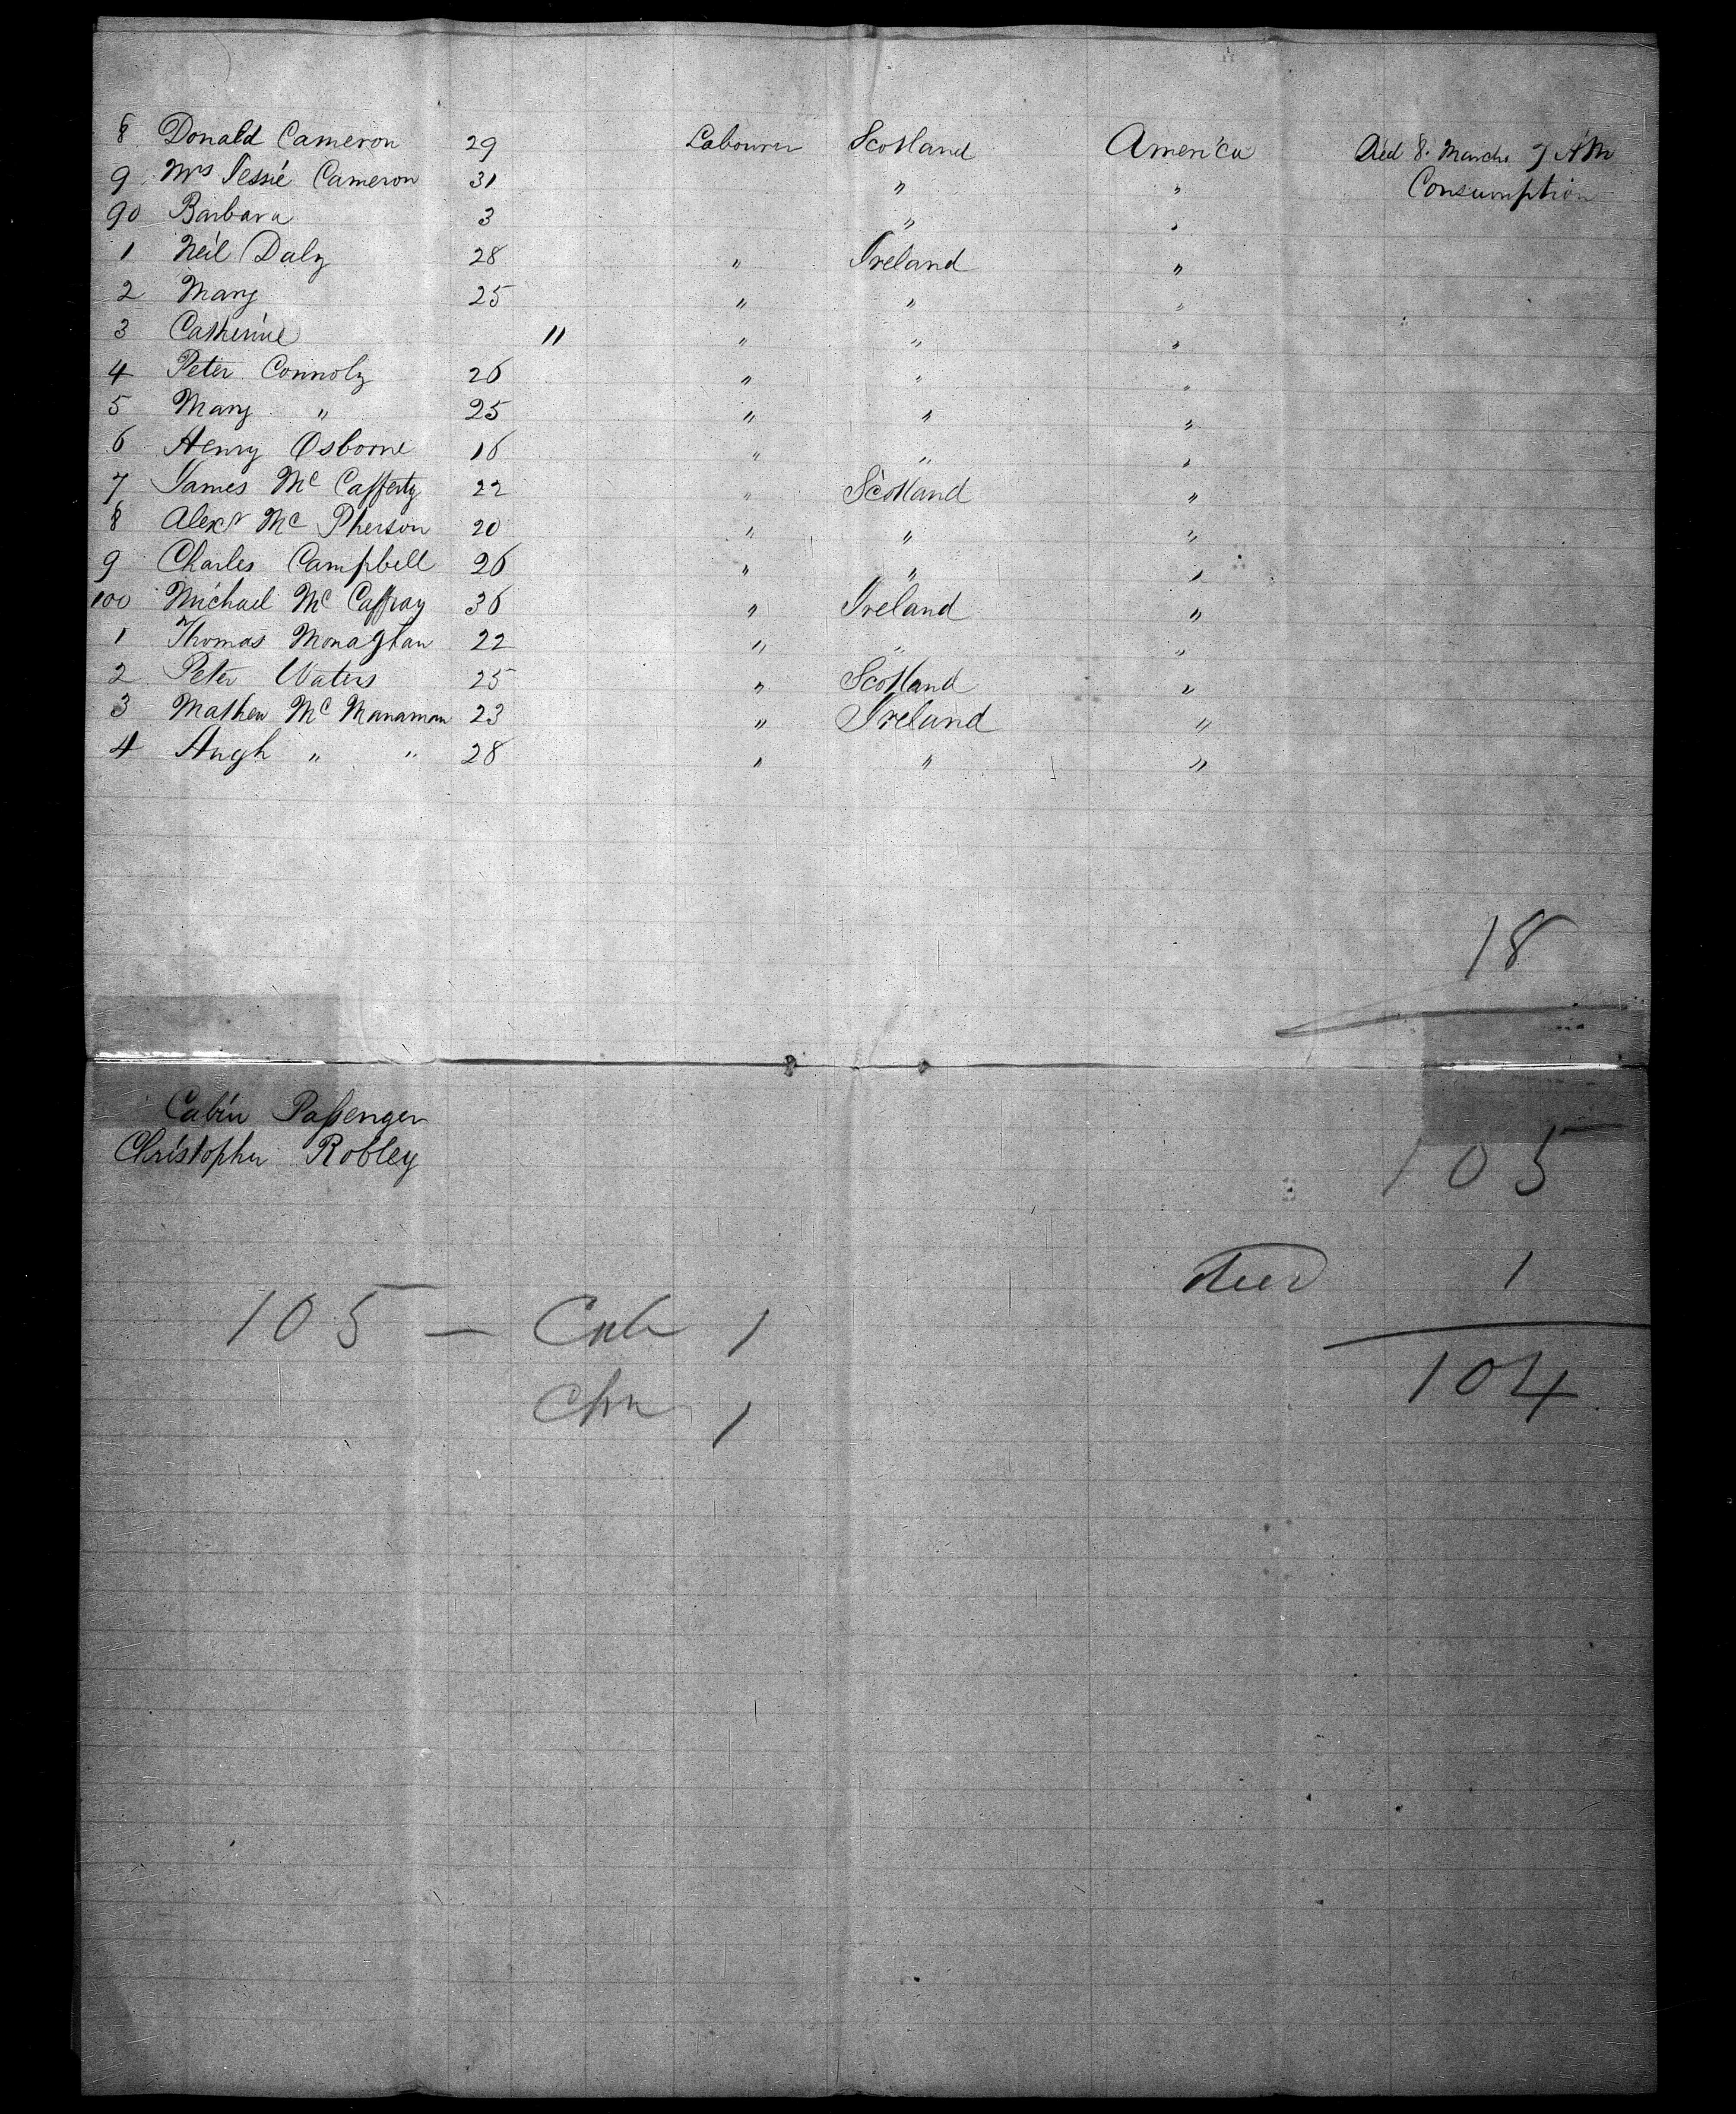 8 Donald Cameron 29 Labourer Scotland America Died 8. March 7 AM
9 Mrs Jessie Cameron 31 " " Consumption
90 Barbara 3 " "
1 Neil Daly 28 " Ireland "
2 Mary 25 " " "
3 Catherine 11 " " "
4 Peter Connoly 26 " " "
5 Mary " 25 " " "
6 Henry Osborne 16 " " "
7 James Mc Cafferty 22 " Scotland "
8 Alexr Mc Pherson 20 " " "
9 Charles Campbell 26 " " "
100 Michael Mc Caffray 36 " Ireland "
1 Thomas Monaghan 22 " " "
2 Peter Waters 25 " Scotland "
3 Mathew Mc Manaman 23 " Ireland "
4 Hugh " " 28 " " "
18
Cabin Passenger
Christopher Robley
105
1
105 — Cab 1
104
1